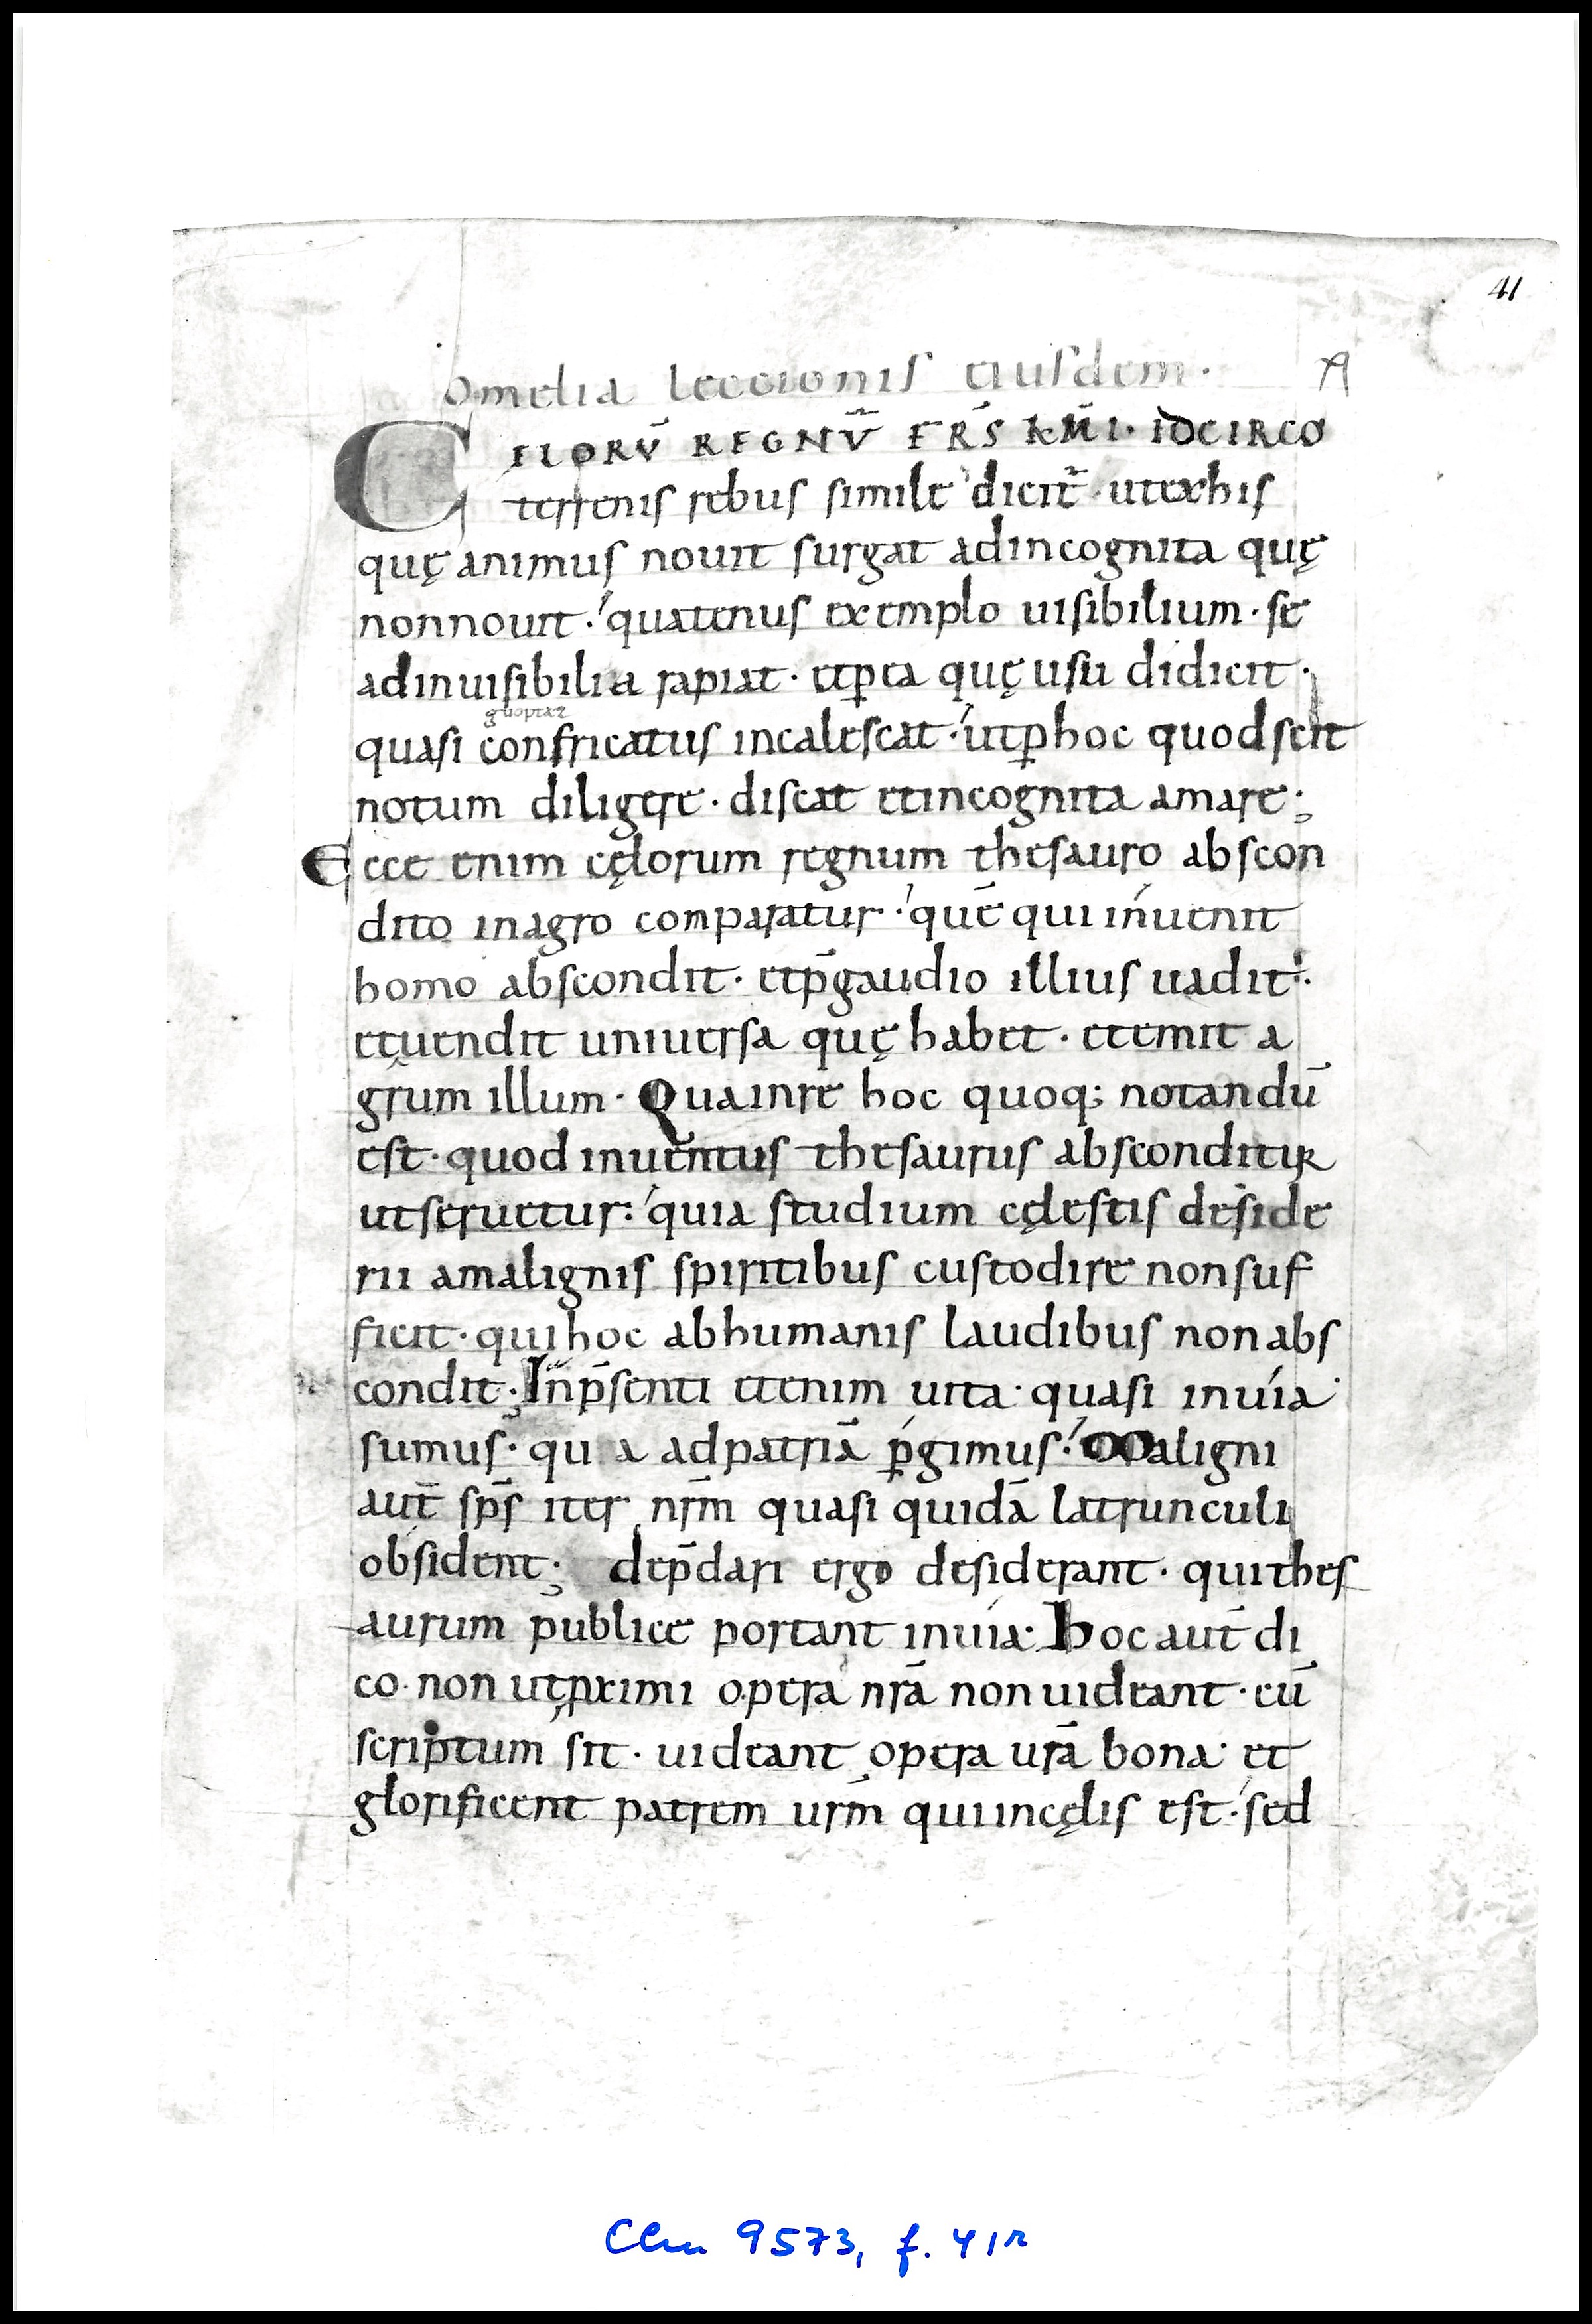 41
Omelia leccionis eiusdem. A
CELORŪ REGNŪ FR̄S KM̄I. IDCIRCO
terrenis rebus simile dicit̄ utexhis
quę animus nouit surgat adincognita quę
nonnouit. quatenus exemplo uisibilium. se
adinuisibilia rapiat. etꝑea quę usu didicit.
quasi confricatus incalescat. utꝑhoc quodscit
notum diligere. discat etincognita amare;
Ecce enim cęlorum regnum thesauro abscon
dito inagro comparatur. quē qui inuenit
homo abscondit. etp̄gaudio illius uadit.
etuendit uniuersa quę habet. etemit a
grum illum. Quainre hoc quoq; notandū
est. quod inuentus thesaurus absconditur
utseruetur: quia studium cęlestis deside
rii amalignis spiritibus custodire nonsuf
ficit. quihoc abhumanis laudibus nonabs
condit; Inp̄senti etenim uita. quasi inuia
sumus. qua adpatriā ꝑgimus. Maligni
aut̄ sp̄s iter nr̄m quasi quidā latrunculi
obsident; dep̄dari ergo desiderant. quithes
aurum publice portant inuia. hoc aut̄ di
co. non utꝓximi opera nr̄a non uideant. cū
scriptum sit. uideant opera ur̄a bona. et
glorificent patrem ur̄m quiincęlis est. sed
Clm 9573, f. 41r